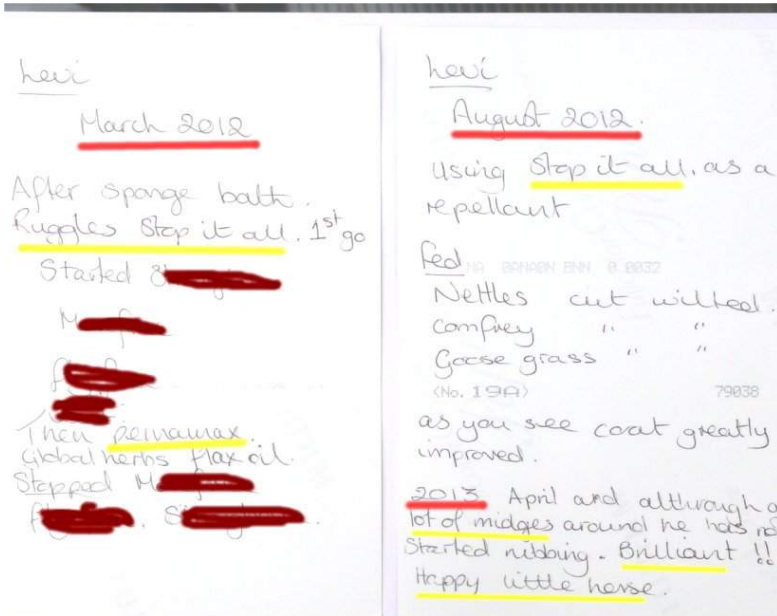 Levi
March 2012
After sponge bath.
Ruggles Stop it all. 1st go
Started
Then pernamax.
Global herbs flax oil.
Stopped
Levi
August 2012.
Using Stop it all. as a
repellant
fed
NA 0.0032
Nettles cut wilted.
comfrey " "
Goose grass " "
<No. 19A> 79038
as you see coat greatly
improved.
2013 April and althrough a
lot of midges around he has not
Started rubbing. Brilliant !!
Happy little horse.